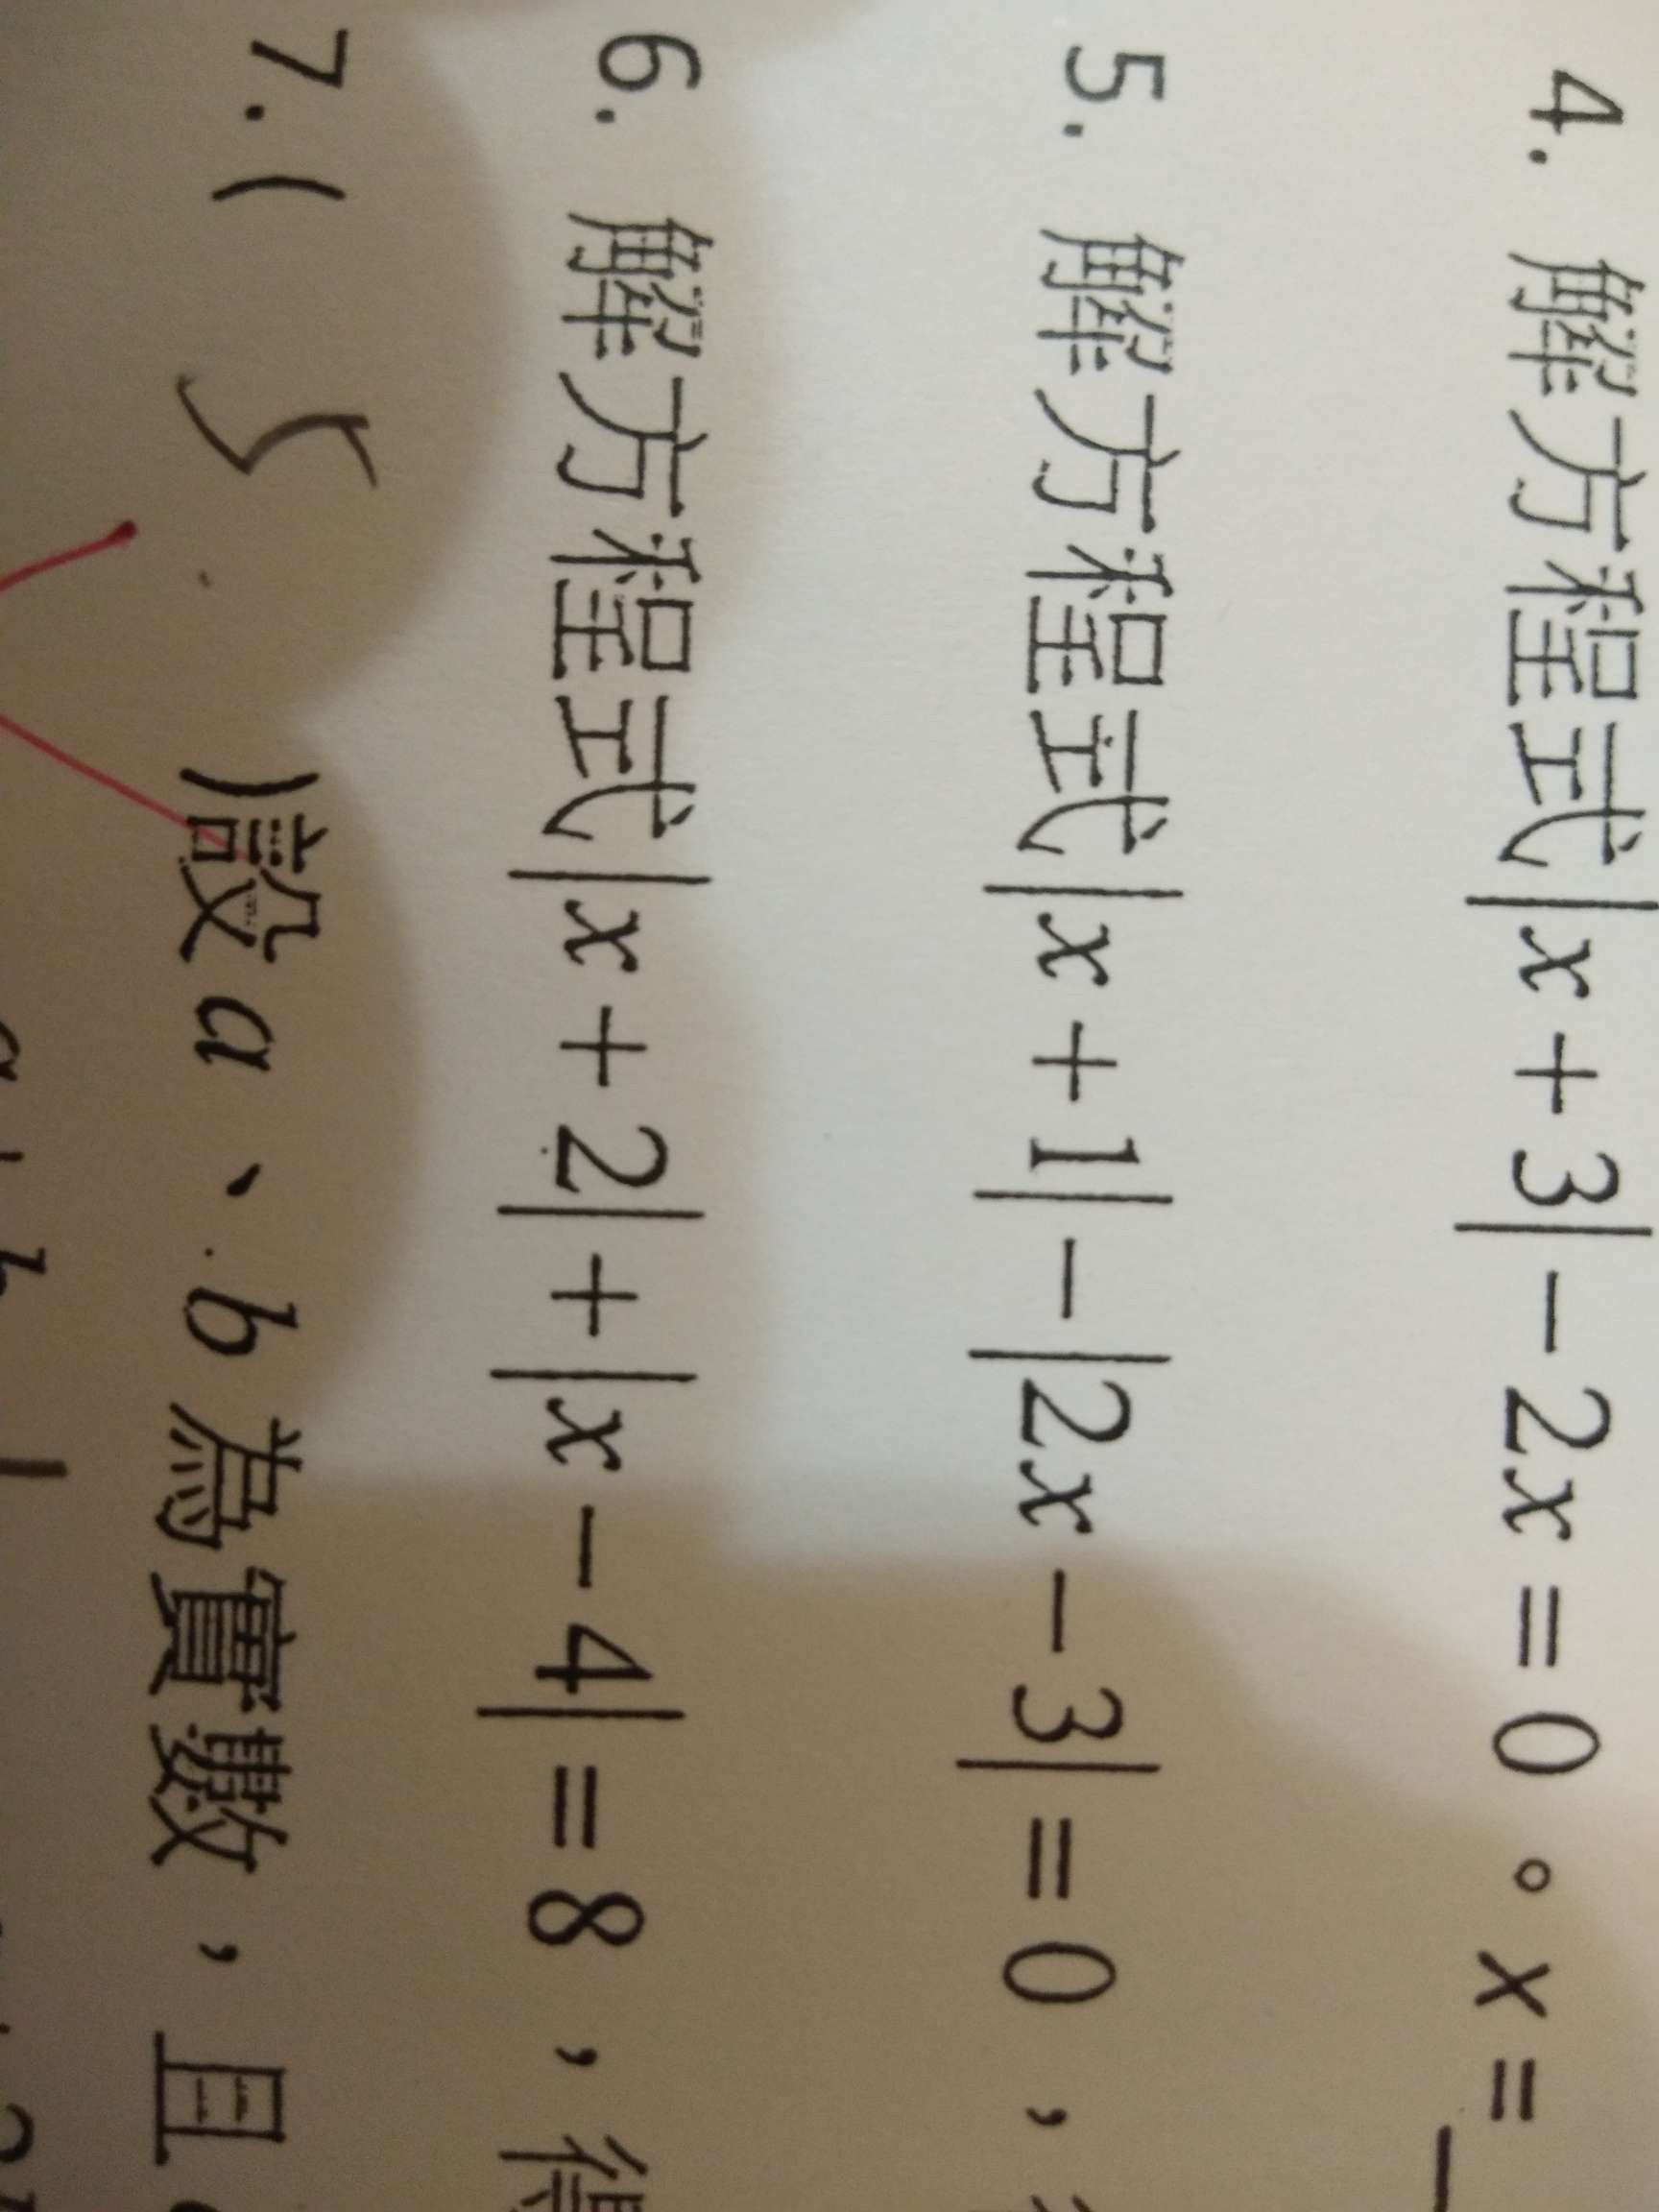 4. 解方程式|x+3|-2x=0。x=
5. 解方程式|x+1|-|2x-3|=0,
6. 解方程式|x+2|+|x-4|=8,得
7.( 5 )設a、b為實數,且